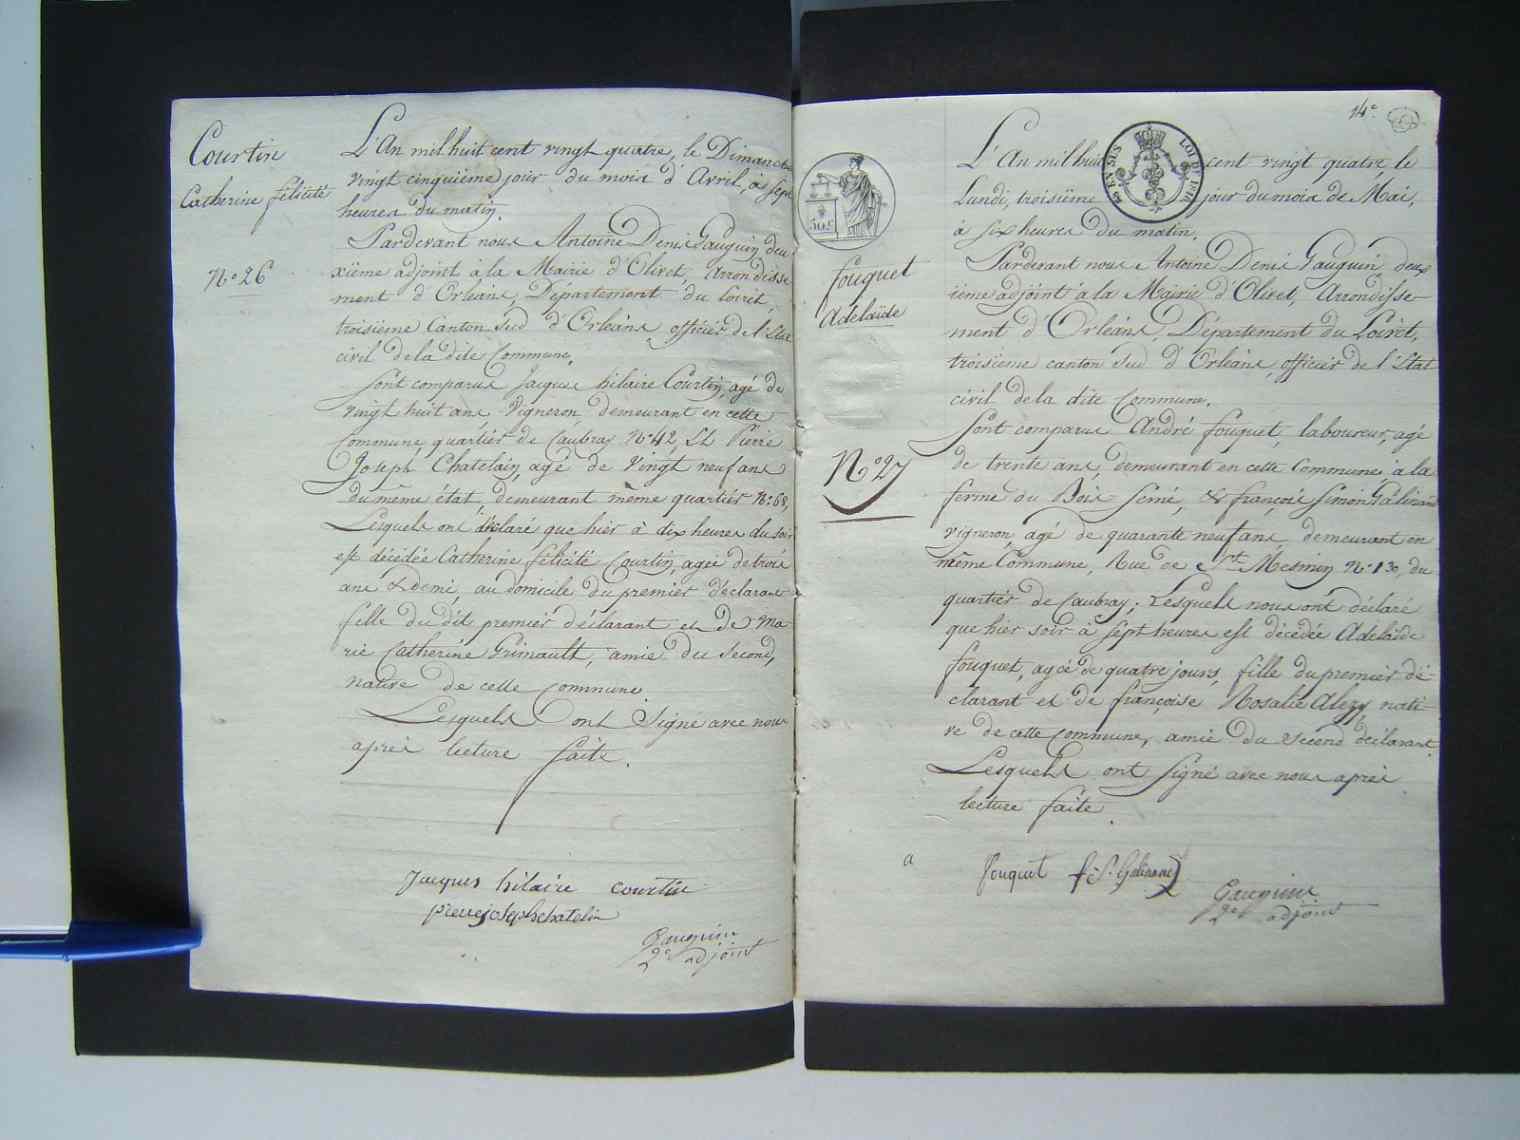 Courtin
Catherine félicité
N.o 26
L'An mil huit cent vingt quatre, le Dimanche
vingt cinquième jour du mois d'Avril, à sept
heures du matin.
Pardevant nous Antoine Denis Gauguin deu
xième adjoint à la Mairie d'Olivet, Arrondisse
ment d'Orléans, Département du Loiret,
troisième Canton Sud d'Orléans officier de l'Etat
civil de la dite Commune.
Sont comparus Jacques hilaire Courtin, agé de
vingt huit ans Vigneron, demeurant en cette
Commune quartier de Caubray N.o 42, Et Pierre
Joseph Chatelain, agé de vingt neuf ans
du même état, demeurant même quartier N.o 68,
Lesquels ont déclaré que hier à dix heures du soir
est décédée Catherine félicité Courtin, agée de trois
ans & demi, au domicile du premier déclarant
fille du dit premier déclarant et de Ma
rie Catherine Grimault, amie du Second,
native de cette commune.
Lesquels ont Signé avec nous
après lecture faite.
Jacques hilaire courtin
pierre joseph chatelin
Gauguin
2e adjoint
14e
LOI DU
30c
fouquet
Adelaïde
N.o 27
L'An mil huit cent vingt quatre, le
Lundi, troisième jour du mois de Mai,
à six heures du matin.
Pardevant nous Antoine Denis Gauguin, deux
ième adjoint à la Mairie d'Olivet, Arrondisse-
ment d'Orléans, Département du Loiret,
troisième canton Sud d'Orléans, officier de l'Etat
civil de la dite Commune.
Sont comparus André fouquet, laboureur, agé
de trente ans, demeurant en cette Commune, à la
ferme du Bois Semé, & françois Simon
vigneron, agé de quarante neuf ans, demeurant en
même Commune, Rue de St. Mesmin N.o 130, du
quartier de Caubray; Lesquels nous ont déclaré
que hier soir à sept heures est décédée Adelaïde
fouquet, agée de quatre jours, fille du premier dé-
clarant et de françoise Rosalie nati-
ve de cette Commune, amie du second déclarant.
Lesquels ont signé avec nous après
lecture faite.
a
fouquet
Gauguin
2e adjoint